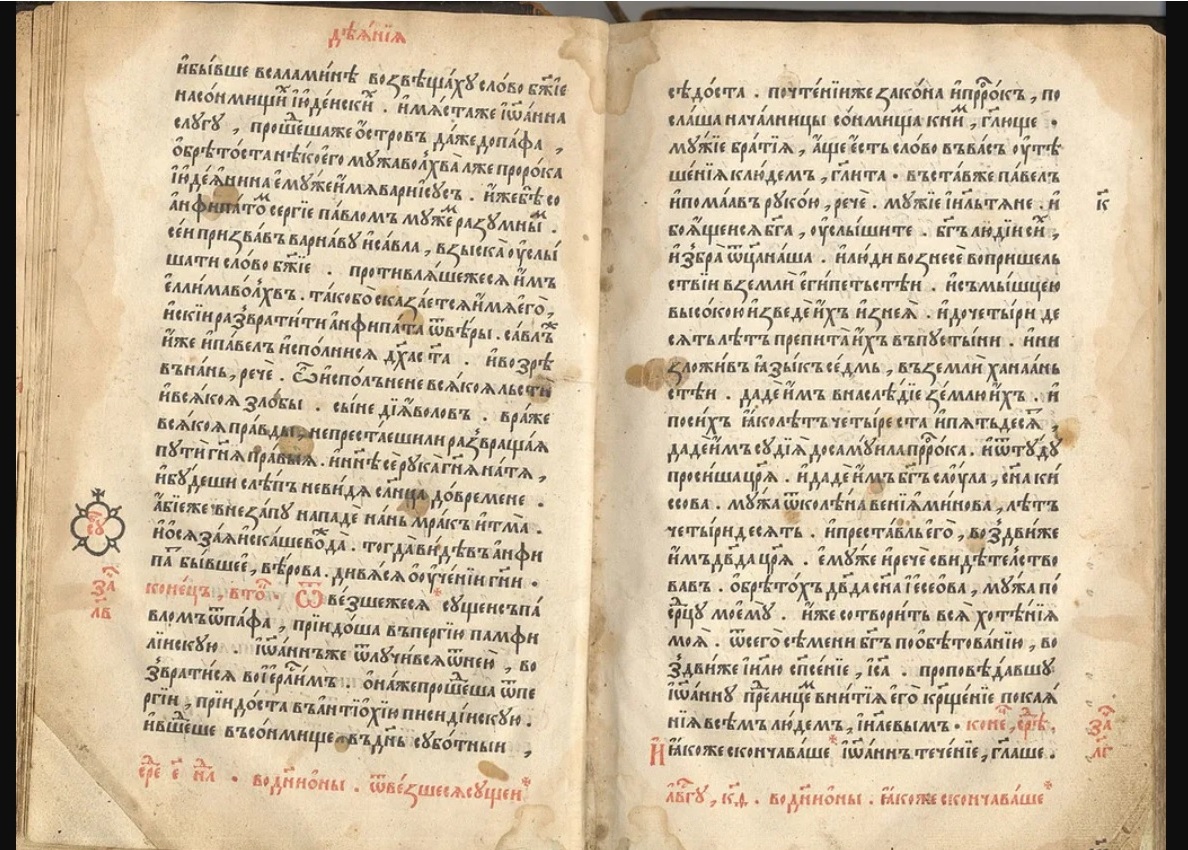 дѣѧ҆́нїѧ
и҆бы́вше всаламинѣ возвѣща́хꙋ сло́во бж҃їе
насо́нмищи і҆ꙋде́йски . и҆мѧ́стаже і҆ѡа́нна
слꙋгꙋ̀ , проше́дшаже о҆́стровъ да́же допа́фа ,
ѡ҆брѣто́ста нѣ́коего мꙋ́жа волхва̀ лже проро́ка
і҆ꙋде́ѧнина є҆мꙋ́же и҆́мѧ варнїсꙋ́съ . и҆́же бѣ̀ со
а҆нфѵпа́томъ се́ргїе па́вломъ мꙋ́жемъ разꙋ́мнымъ .
се́и призва́въ варна́вꙋ и҆са́вла , взыска̀ ᲂу҆слы́
шати сло́во бж҃їе . противлѧ́шежесѧ и҆́мъ
є҆ли́ма во́лхвъ . та́ко бо ска́заетсѧ и҆́мѧ є҆го̀ ,
и҆скїѝ разврати́ти а҆нфѵпа́та ѿвѣ́ры . са́влъ же
и҆́же и҆па́велъ и҆спо́лнисѧ дх҃а ст҃а . и҆возрѣ́
въна́нь , речѐ . ѽ и҆спо́лънене всѧ́коѧ льсти
и҆всѧ́коѧ зло́бы . сы́не дїѧ́воловъ . вра́же
всѧ́коѧ пра́вды , непреста́еши ли развраща́ѧ
пꙋти̑ гн҃ѧ пра́выѧ . и҆нн҃ѣ сѐ рꙋка̀ гн҃ѧ на́тѧ ,
и҆бꙋ́деши слѣ́пъ неви́дѧ сл҃нца до́времене .
а҆́бїеже внеза́пꙋ нападѐ на́нь мра́къ и҆тма̀ .
и҆ѻ҆сѧза́ѧ и҆ска́ше вода̀ . тогда̀ ви́дѣвъ а҆нфи
па́тъ бы́вшее , вѣ́рова . дивѧ́сѧ ѻ҆ᲂу҆че́нїи гн҃и .
коне́цъ , вто́ . ѿве́зшежесѧ сꙋщеи съпа́
вломъ ѿпа́фа , прїидо́ша въпергїю памфи
лїискꙋю . і҆ѡа́ннъже ѿлꙋчи́всѧ ѿнею̀ , во
зврати́сѧ воі҆ерⷭ҇ли́мъ . ѻ҆на́же проше́дша ѿпе
ргїи , прїидо́ста въа҆нтїо҆хі́ю писиді́искꙋю .
и҆вше́дше въсо́нмище въдн҃ь сꙋбо́тныи ,
сꙋ
за҆
лв
сре є҃ нл . водни ѻ҆ны . ѿве́зшесѧ сꙋщеи
сѣдо́ста . почте́нїиже зако́на и҆прⷪ҇ро́къ , по
сла́ша нача́лницы со́нмища книмъ , гл҃юще .
мꙋ́жїе бра́тїѧ , а҆́ще є҆́сть сло́во въва́съ ᲂу҆тѣ
ше́нїѧ клю́демъ , гл҃ита . въста́вже па́велъ
и҆пома́авъ рꙋко́ю , речѐ . мꙋ́жїе і҆ил҃ьтѧне . и҆
боѧ́щеисѧ бг҃а , ᲂу҆слы́шите . бг҃ъ лю́дїи си́хъ ,
и҆збра̀ ѿц҃а на́ша . и҆лю́ди вознесѐ вопришель
ствїи вземлѝ є҆ги́петьстѣи . и҆съмы́шцею
высо́кою и҆зведѐ и҆́хъ и҆знеѧ̀ . и҆дочеты́ри де
сѧть лѣ́тъ препита́ и҆́хъ въпꙋсты́ни . и҆ни
зложи́въ ꙗ҆зы́къ се́дмь , въземлѝ ханаа́нь
стѣи . дадѐ и҆́мъ внаслѣ́дїе зе́млю и҆́хъ . и҆
поси́хъ ꙗ҆́ко лѣ́тъ четы́ре ста и҆пѧтьдесѧ́тъ ,
дадѐ и҆́мъ сꙋдїѧ̀ досамꙋи́ла прⷪ҇ро́ка . и҆ѿтꙋ́дꙋ
проси́ша цр҃ѧ̀ . и҆дадѐ и҆́мъ бг҃ъ саꙋ́ла , сн҃а ки
сова . мꙋ́жа ѿколѣ́на венїѧми́нова , лѣ́тъ
четы́ридесѧть . и҆преста́вль є҆го̀ , воздви́же
и҆́мъ дв҃да цр҃ѧ̀ . є҆мꙋ́же и҆речѐ свидѣ́телство
вавъ . ѡ҆брѣто́хъ дв҃да сн҃а і҆ессе́ова , мꙋ́жа по
ср҃цꙋ моемꙋ̀ . и҆́же сотвори́тъ всѧ̑ хотѣ́нїѧ
моѧ̑ . ѿсего̀ сѣ́мени бг҃ъ поѻ҆бѣтова́нїю , во
здви́же і҆ил҃ю сп҃се́нїе , і҆с҃а . проповѣ́давшꙋ
і҆ѡа́ннꙋ пре́длицемъ вни́тїѧ є҆го̀ крⷭ҇ще́нїе покаѧ́
нїѧ всѣ́мъ лю́демъ , і҆ил҃евымъ . коне́ , сре́ ,
И҆ ꙗ҆́коже скончава́ше і҆ѡа́ннъ тече́нїе , гл҃аше .
к
за҆
лг
л҃вгꙋ , к҃д . водни ѻ҆ны . ꙗ҆́коже скончава́ше